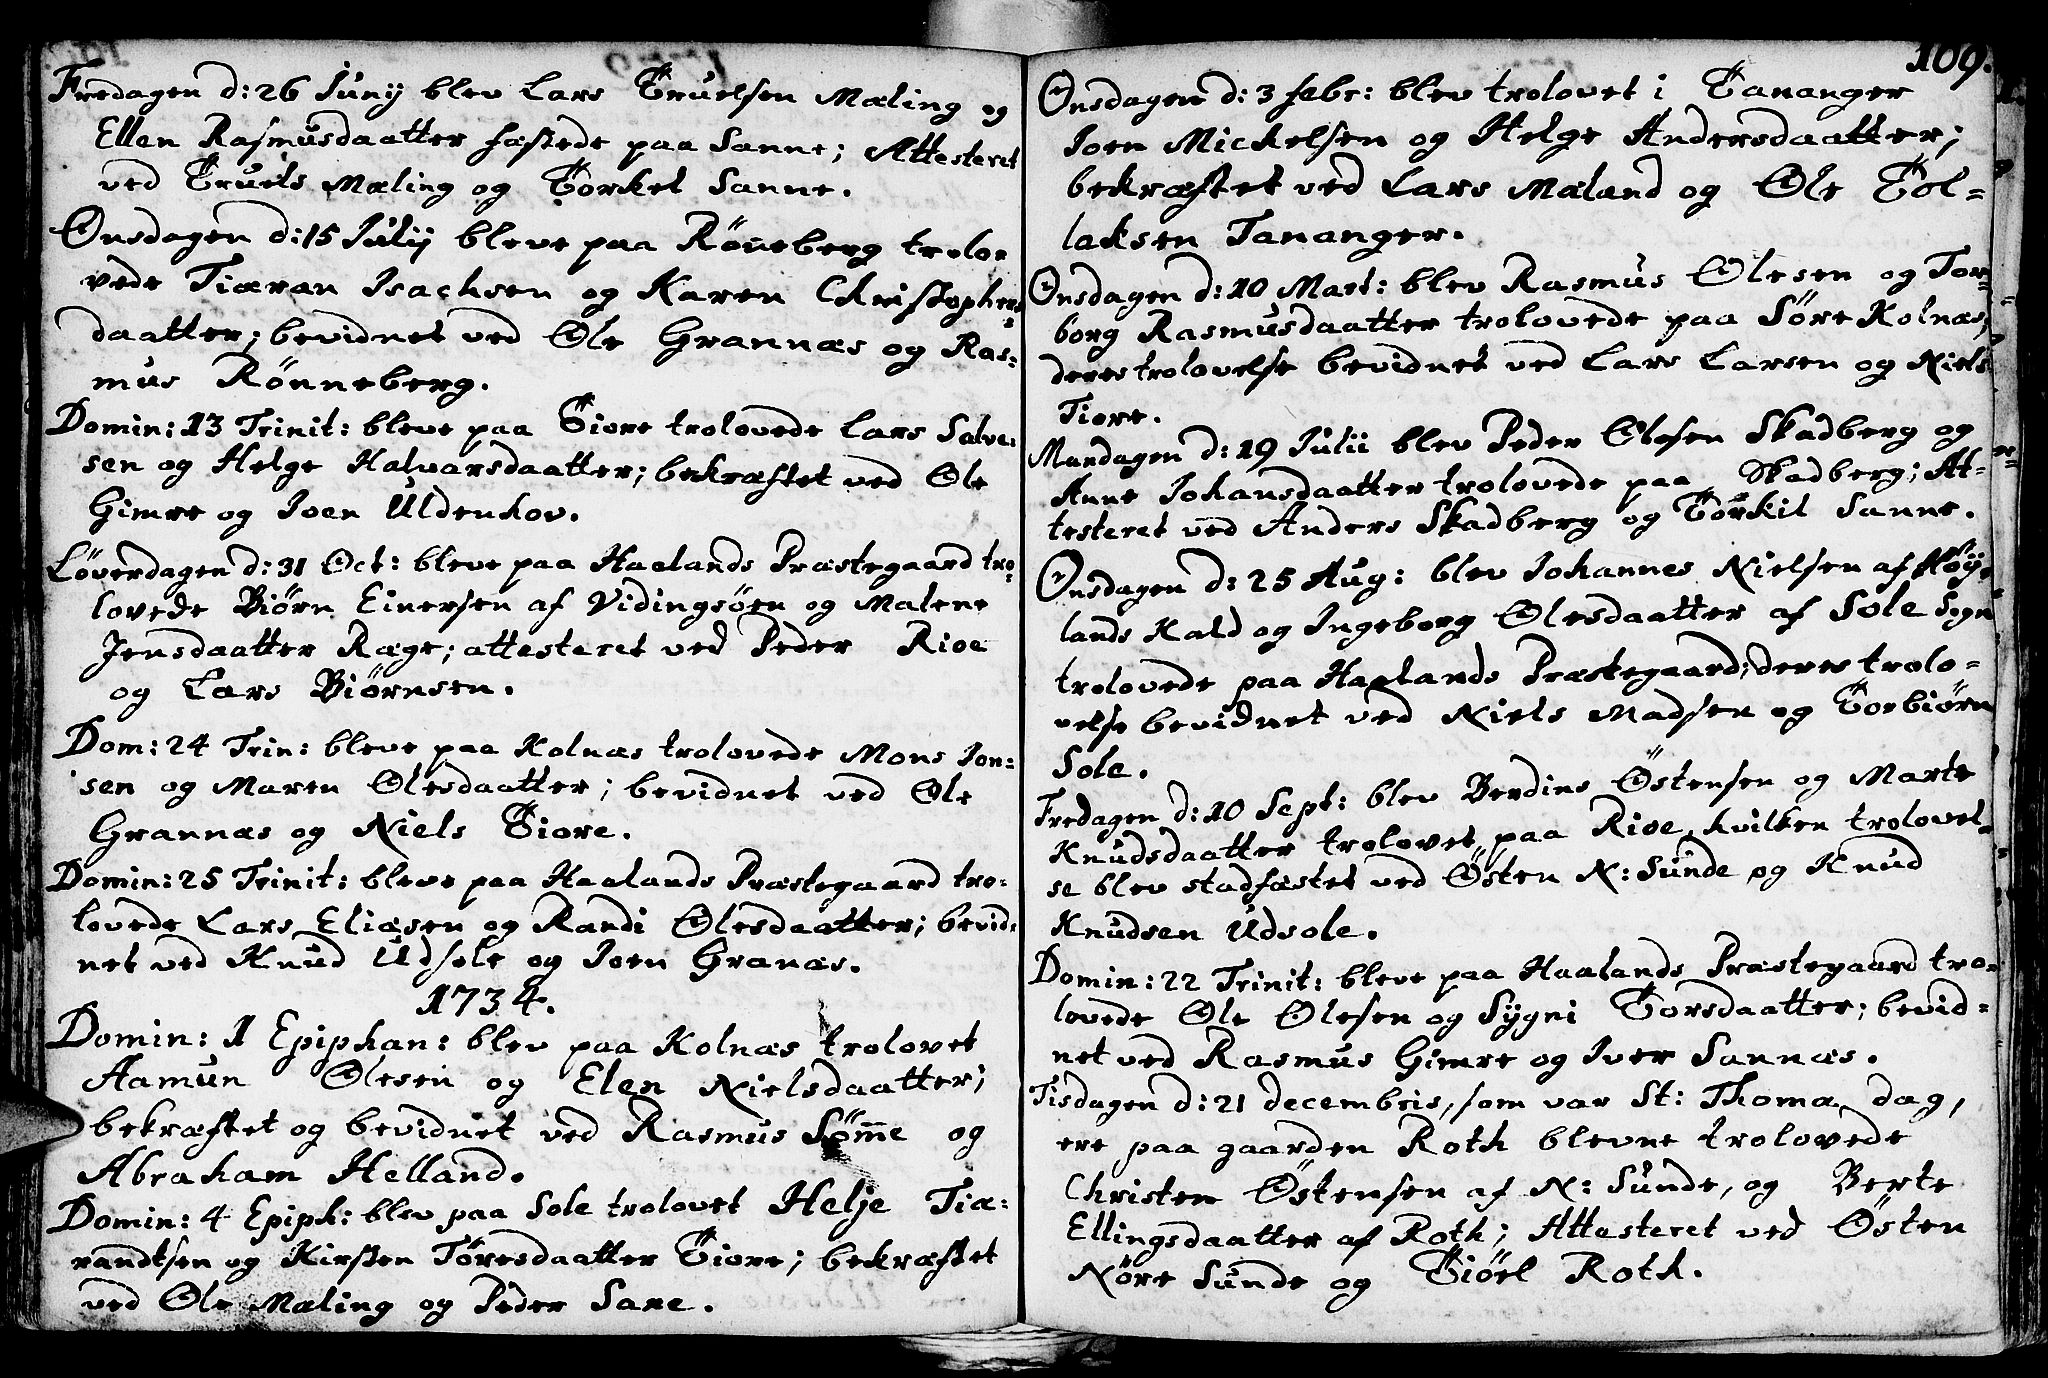 Fredagen d: 26 Junij blev Lars Truelsen Mæling og
Ellen Rasmusdaatter fæstede paa Sanne; Attesteret
ved Truels Mæling og Torkel Sanne.
Onsdagen d: 15 Julij bleve paa Röneberg trolo-
vede Tiæran Isachsen og Karen Christophers
daatter; bevidnet ved Ole Grannæs og Ras-
mus Rönneberg.
Domin: 13 Trinit: bleve paa Tiore trolovede Lars Salve-
sen og Helge Halvarsdaatter; bekræftet ved Ole
Gimre og Joen Uldenhov.
Löverdagen d: 31 Oct: bleve paa Haalands Præstegaard tro-
lovede Biörn Einersen af Vidingsöen og Malene
Jensdaatter Ræge; attesteret ved Peder Rioe
og Lars Biörnsen.
Dom: 24 Trin: bleve paa Kolnæs trolovede Mons Jon-
sen og Maren Olesdaatter; bevidnet ved Ole
Grannæs og Niels Tiore.
Domin: 25 Trinit: bleve paa Haalands Præstegaard tro-
lovede Lars Eliæsen og Randi Olesdaatter; bevid-
net ved Knud Udsole og Joen Granæs.
1734.
Domin: 1 Epiphan: blev paa Kolnæs trolovet
Aamun Olesen og Elen Nielsdaatter;
bekræftet og bevidnet ved Rasmus Söm̅e og
Abraham Helland.
Domin: 4 Epiph: blev paa Sole trolovet Helje Tiæ-
randtsen og Kirsten Töresdaatter Tiore; bekræftet
ved Ole Mæling og Peder Sare.
109.
Onsdagen d: 3 febr: blev trolovet i Tananger
Joen Mickelsen og Helge Andersdaatter;
bekræftet ved Lars Mæland og Ole Tol-
laksen Tananger.
Onsdagen d: 10 Mart: blev Rasmus Olesen og Tor-
borg Rasmusdaatter trolovede paa Söre Kolnæs;
deres trolovelse bevidnet ved Lars Larsen og Niels
Tiore.
Mandagen d: 19 Julii blev Peder Olesen Skadberg og
Anne Johansdaatter trolovede paa Skadberg; At-
testeret ved Anders Skadberg og Torkil Sanne.
Onsdagen d: 25 Aug: blev Johannes Nielsen af Höy-
lands Kald og Ingeborg Olesdaatter af Sole Sogn
trolovede paa Haalands Præstegaard; deres trolo-
velse bevidnet ved Niels Madsen og Torbiörn
Sole.
Fredagen d: 10 Sept: blev Berdins Östensen og Marte
Knudsdaatter trolovet paa Rioe, hvilken trolovel-
se blev stadfæstet ved Östen N: Sunde og Knud
Knudsen Udsole.
Domin: 22 Trinit: bleve paa Haalands Præstegaard tro-
lovede Ole Olesen og Sygni Torsdaatter; bevid-
net ved Rasmus Gimre og Iver Sannæs.
Tisdagen d: 21 decembris, som var St: Thomæ dag,
ere paa gaarden Roth blevne trolovede
Christen Östensen af N: Sunde, og Berte
Ellingsdaatter af Roth; Attesteret ved Östen
Nöre Sunde og Tiöel Roth.